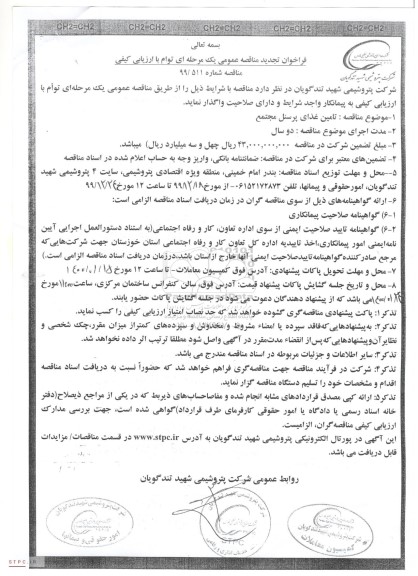 CH2=CH2 CH2=CH2 CH2=CH2 CH2=CH2 CH2=CH2
بسمه تعالی
فراخوان تجدید مناقصه عمومی یک مرحله ای توام با ارزیابی کیفی
مناقصه شماره ۹۹/۵۱۱
شرکت پتروشیمی شهید تندگویان
شرکت پتروشیمی شهید تندگویان در نظر دارد مناقصه با شرایط ذیل را از طریق مناقصه عمومی یک مرحله‌ای توأم با
ارزیابی کیفی به پیمانکار واجد شرایط و دارای صلاحیت واگذار نماید.
۱-موضوع مناقصه : تامین غذای پرسنل مجتمع
۲- مدت اجرای موضوع مناقصه : دو سال
۳- مبلغ تضمین شرکت در مناقصه ۴۳,۰۰۰,۰۰۰,۰۰۰ ریال چهل و سه میلیارد ریال) میباشد.
۴- تضمین‌های معتبر برای شرکت در مناقصه: ضمانتنامه بانکی، واریز وجه به حساب اعلام شده در اسناد مناقصه
۵-محل و مهلت توزیع اسناد مناقصه: بندر امام خمینی، منطقه ویژه اقتصادی پتروشیمی، سایت ۴ پتروشیمی شهید
تندگویان، امورحقوقی و پیمانها، تلفن ۰۶۱۵۲۱۷۲۸۷۳- از مورخ تا ساعت ۱۲ مورخ
۶- ارائه گواهینامه‌های ذیل از سوی مناقصه گران در زمان دریافت اسناد مناقصه الزامی است:
۶-۱) گواهینامه صلاحیت پیمانکاری
۶-۲) گواهینامه تایید صلاحیت ایمنی از سوی اداره تعاون، کار و رفاه اجتماعی(به استناد دستورالعمل اجرایی آیین
نامه‌ایمنی امور پیمانکاری،اخذ تاییدیه اداره کل تعاون کار و رفاه اجتماعی استان خوزستان جهت شرکت‌هایی‌که
مرجع صادرکننده‌گواهینامه‌تاییدصلاحیت ایمنی آنها خارج ازاستان باشد،درزمان دریافت اسناد مناقصه الزامی است.)
۷- محل و مهلت تحویل پاکات پیشنهادی: آدرس فوق کمیسیون معاملات- تا ساعت ۱۲ مورخ
۸- محل و تاریخ جلسه گشایش پاکات پیشنهاد قیمت: آدرس فوق، سالن کنفرانس ساختمان مرکزی، ساعت مورخ
می باشد که از پیشنهاد دهندگان دعوت می شود در جلسه گشایش پاکات حضور یابند.
تذکر۱: پاکت پیشنهادی مناقصه‌گری گشوده خواهد شد که حد نصاب امتیاز ارزیابی کیفی را کسب نماید.
تذکر۲: به‌پیشنهادهایی‌که‌فاقد سپرده یا امضاء مشروط و مخدوش و سپرده‌های کمتراز میزان مقرر،چک شخصی و
نظایرآن‌وپیشنهادهایی‌که‌پس‌از انقضاء مدت‌مقرر در آگهی واصل شود مطلقا ترتیب اثر داده نخواهد شد.
تذکر۳: سایر اطلاعات و جزئیات مربوطه در اسناد مناقصه مندرج می باشد.
تذکر۴: شرکت در فرآیند مناقصه جهت مناقصه‌گری فراهم خواهد شد که حضورآ نسبت به دریافت اسناد مناقصه
اقدام و مشخصات خود را تسلیم دستگاه مناقصه گزار نماید.
تذکر۵: ارائه کپی مصدق قراردادهای مشابه انجام شده و مفاصاحساب‌های ذیربط که در یکی از مراجع ذیصلاح(دفتر
خانه اسناد رسمی یا دادگاه یا امور حقوقی کارفرمای طرف قرارداد)گواهی شده است، جهت بررسی مدارک
ارزیابی کیفی مناقصه‌گران، الزامیست.
این آگهی در پورتال الکترونیکی پتروشیمی شهید تندگویان به آدرس www.stpc.ir در قسمت مناقصات/ مزایدات
قابل دریافت می باشد.
روابط عمومی شرکت پتروشیمی شهید تندگویان
امور حقوقی و پیمانها
کمیسیون معاملات
STPC